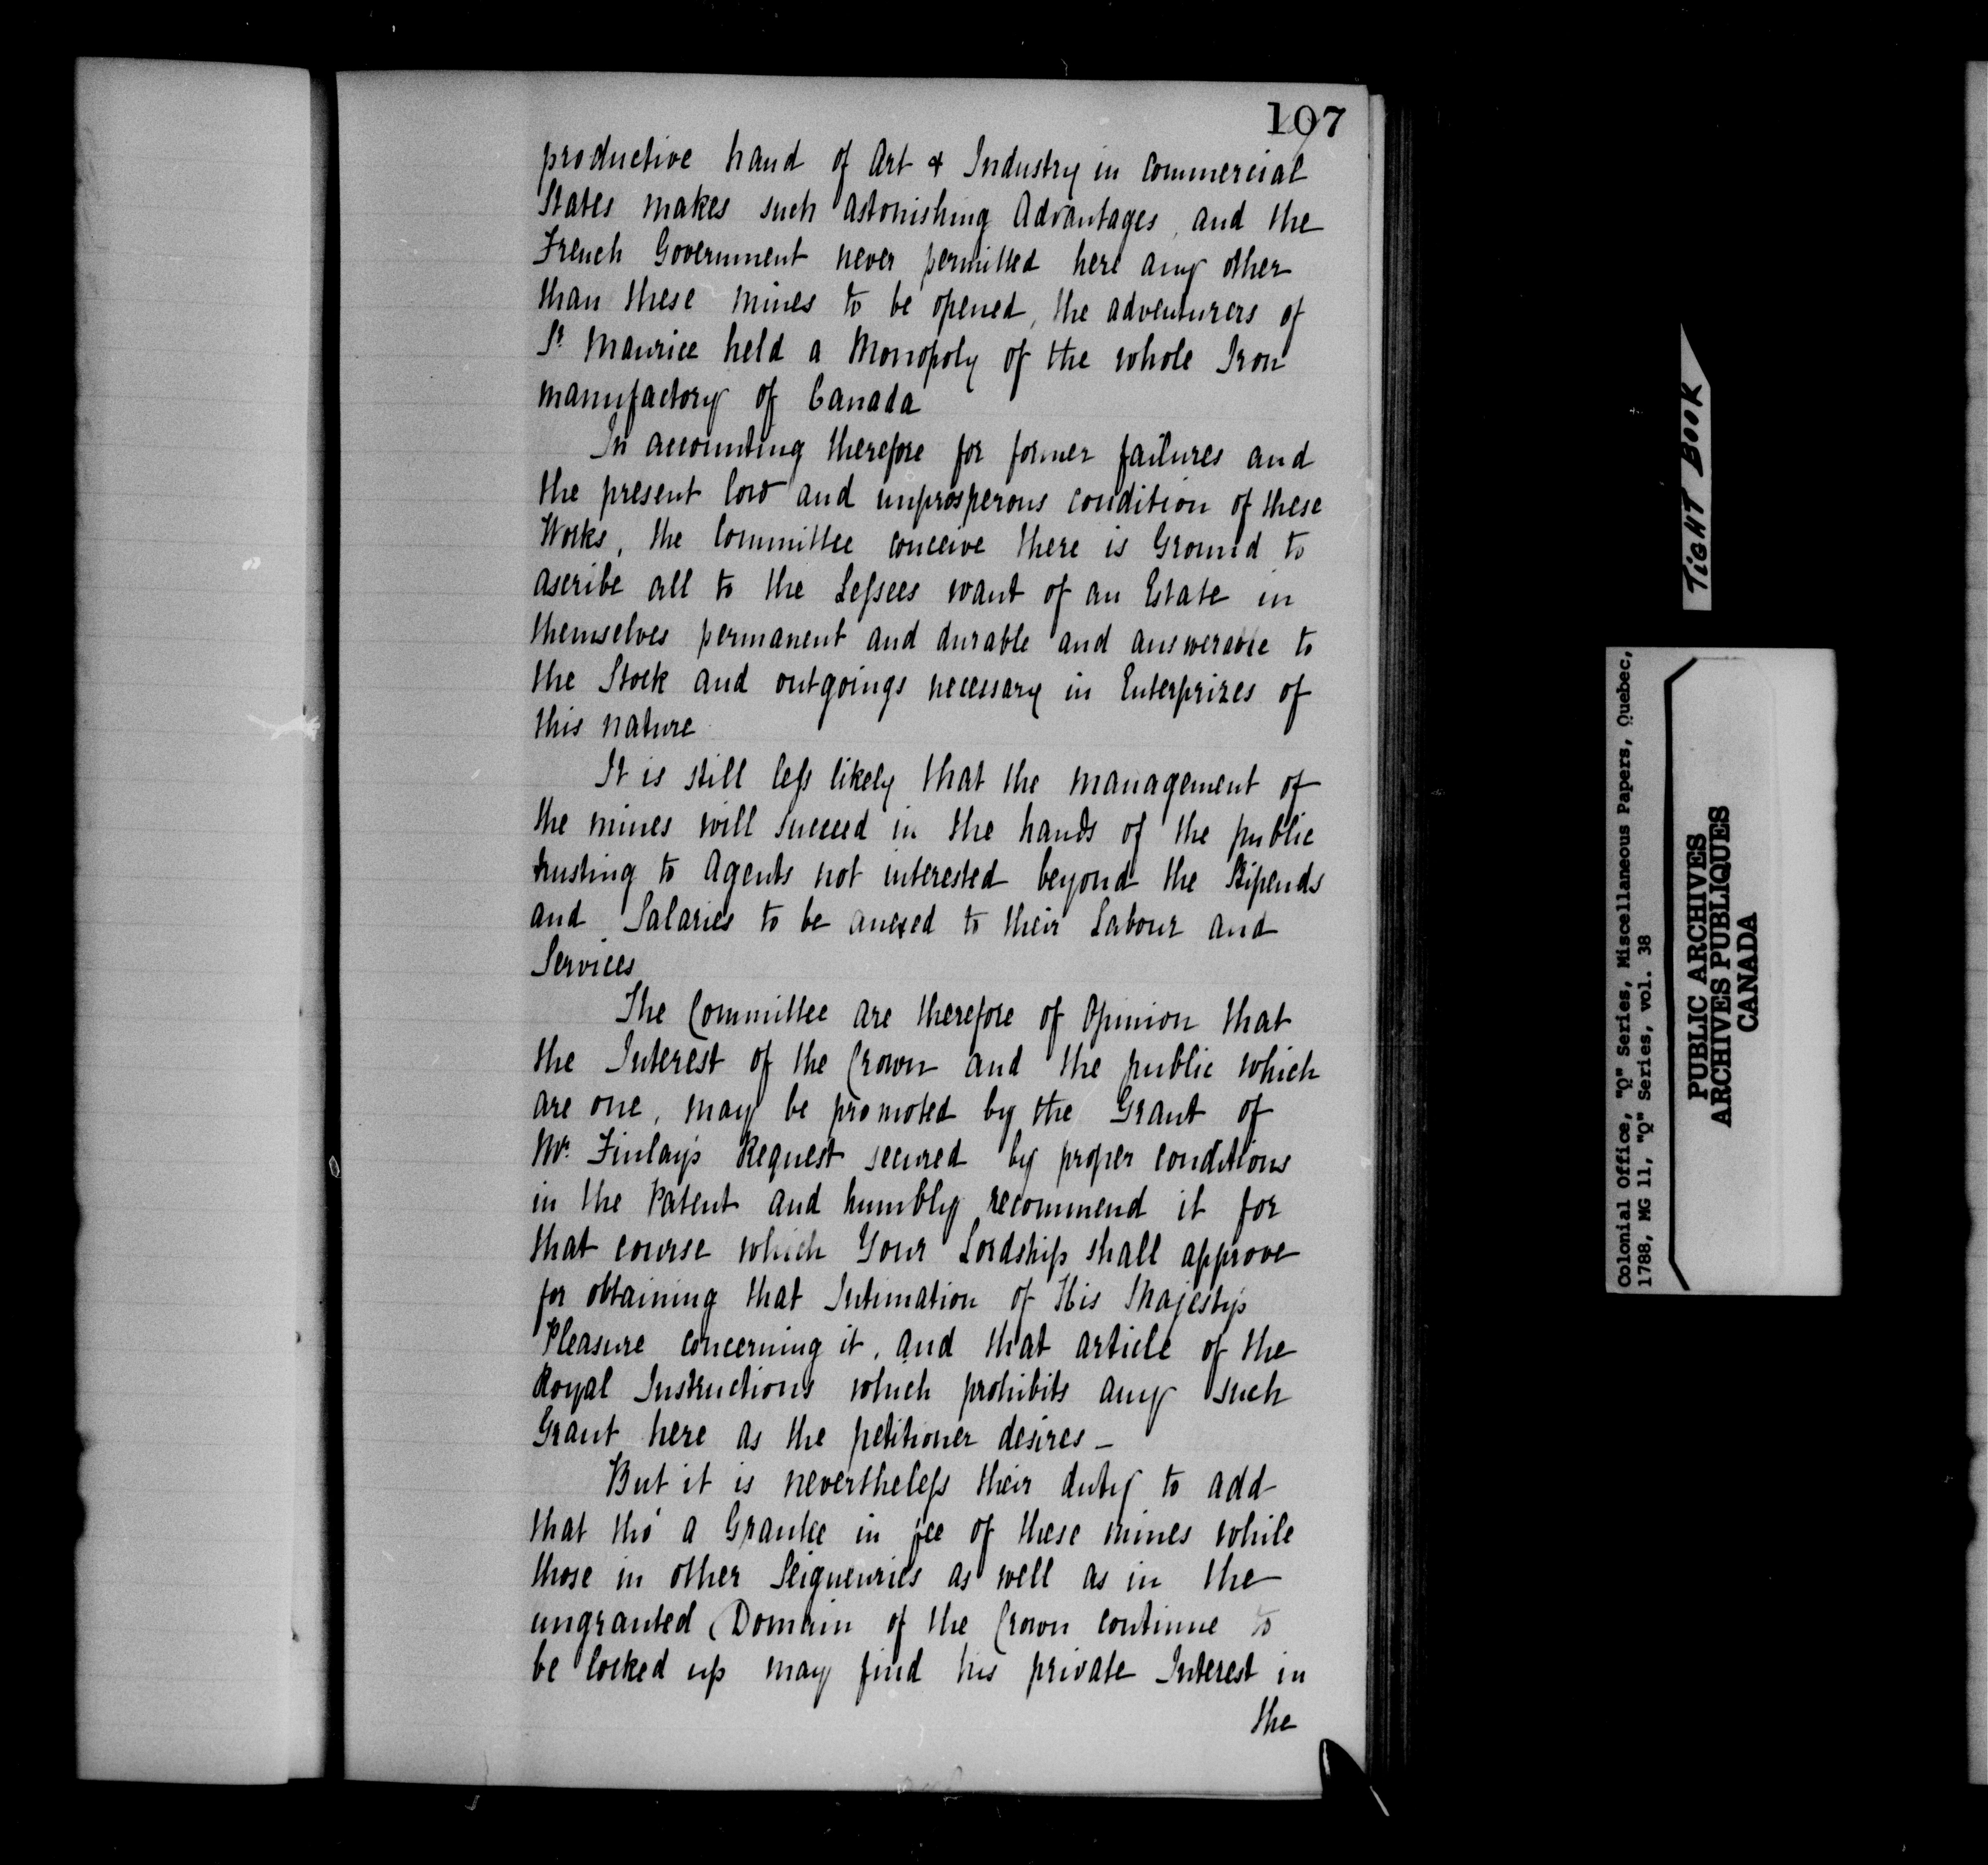 107
productive hand of Art & Industry in Commercial
States makes such astonishing Advantages, and the
French Government never permitted here any other
than these mines to be opened, the adventurers of
St Maurice held a Monopoly of the whole Iron
manufactory of Canada
In accounting therefore for former failures and
the present low and unprosperous condition of these
Works, the Committee conceive there is Ground to
ascribe all to the Leſsees want of an Estate in
themselves permanent and durable and answerable to
the Stock and outgoings necessary in Enterprizes of
this nature
It is still leſs likely that the management of
the mines will succeed in the hands of the public
trusting to Agents not interested beyond the Stipends
and Salaries to be anexed to their Labour and
Services
The Committee are therefore of Opinion that
the Interest of the Crown and the public which
are one, may be promoted by the Grant of
Mr. Finlay's Request secured by proper conditions
in the Patent and humbly recommend it for
that course which Your Lordship shall approve
for obtaining that Intimation of His Majesty's
Pleasure concerning it, and that article of the
Royal Instructions which prohibits any such
Grant here as the petitioner desires –
But it is nevertheleſs their duty to add
that tho' a Grantee in fee of these mines while
those in other Seigneuries as well as in the
ungranted Domain of the Crown continue to
be locked up may find his private Interest in
the
TIGHT BOOK
Colonial Office, "Q" Series, Miscellaneous Papers, Quebec,
1788, MG 11, "Q" Series, vol. 38
PUBLIC ARCHIVES
ARCHIVES PUBLIQUES
CANADA